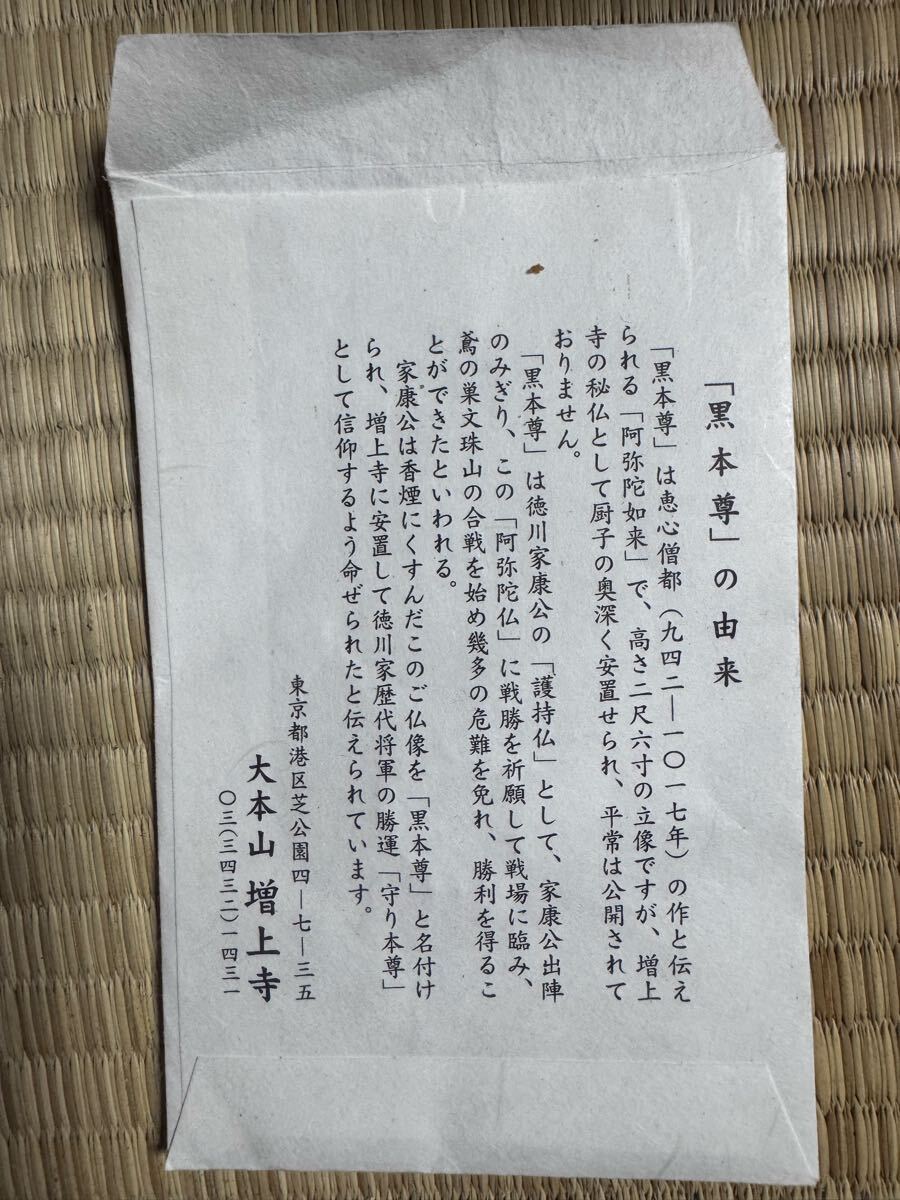 「黒本尊」の由来
「黒本尊」は恵心僧都（九四二―一〇一七年）の作と伝え
られる「阿弥陀如来」で、高さ二尺六寸の立像ですが、増上
寺の秘仏として厨子の奥深く安置せられ、平常は公開されて
おりません。
「黒本尊」は徳川家康公の「護持仏」として、家康公出陣
のみぎり、この「阿弥陀仏」に戦勝を祈願して戦場に臨み、
鳶の巣文珠山の合戦を始め幾多の危難を免れ、勝利を得るこ
とができたといわれる。
家康公は香煙にくすんだこのご仏像を「黒本尊」と名付け
られ、増上寺に安置して徳川家歴代将軍の勝運「守り本尊」
として信仰するよう命ぜられたと伝えられています。
東京都港区芝公園四―七―三五
大本山 増上寺
〇三（三四三二）一四三一